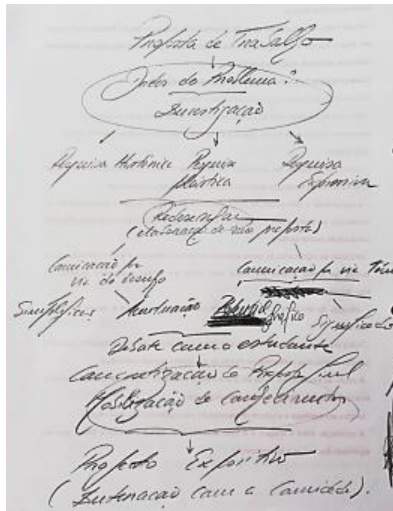 Proposta de Trabalho
Dados do Problema?
Investigação
Pesquisa Histórica Pesquisa Pesquisa
Plástica Expressiva
Redesenhar
(elaboração de não proposta)
Comunicação por Comunicação por via
via do desenho
Simplificar Acentuação gráfico Significado
Debate com o estudante
Concretização da Proposta Final
Mobilização de conhecimentos
Projecto Expositivo
(Interação com a Comunidade).